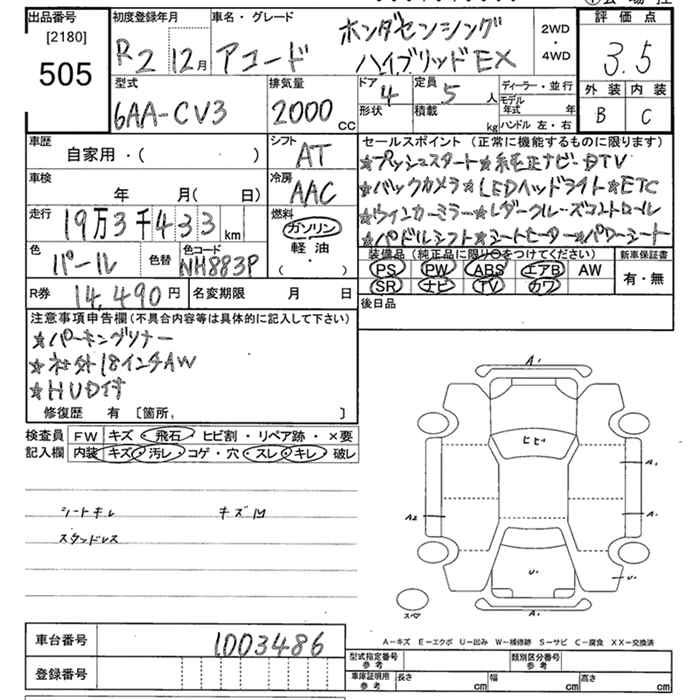 出品番号 初度登録年月 車名・グレード 評価点
[2180] ホンダセンシング 2WD
505 R2 12月 アコード ハイブリッドEX 4WD 3.5
型式 排気量 ドア 定員 ディーラー・並行 外装 内装
6AA-CV3 2000cc 4 5人 モデル年式 年 B C
形状 積載 kg ハンドル 左・右
車歴 シフト セールスポイント (正常に機能するものに限ります)
自家用・( ) AT ☆プッシュスタート☆純正ナビ・DTV
車検 冷房 ☆バックカメラ☆LEDヘッドライト☆ETC
年 月( 日) AAC ☆ウィンカーミラー☆レダークルーズコントロール
走行 燃料 ☆パドルシフト☆シートヒーター☆パワーシート
19万3千433km ガソリン
軽油
( ・ )
色 色替 色コード 装備品(純正品に限り○をつけてください) 新車保証書
パール NH883P PS PW ABS エアB AW 有・無
SR ナビ TV カワ
R券 14,490円 名変期限 月 日 後日品
注意事項申告欄(不具合内容等は具体的に記入して下さい)
☆パーキングソナー
☆社外18インチAW
☆HUD付
修復歴 有 [箇所, ]
検査員 FW キズ・飛石・ヒビ割・リペア跡・×要
記入欄 内装 キズ・汚レ・コゲ・穴・スレ・キレ・破レ
A1
ヒビ
A1
A2 A1
U1
U1
シートキレ キズ凹
スタッドレス
スペア
A-キズ E-エクボ U-凹み W-補修跡 S-サビ C-腐食 XX-交換済
車台番号 1003486
型式指定番号 参考 類別区分番号 参考
登録番号 車庫証明用 参考 長さ cm 幅 cm 高さ cm